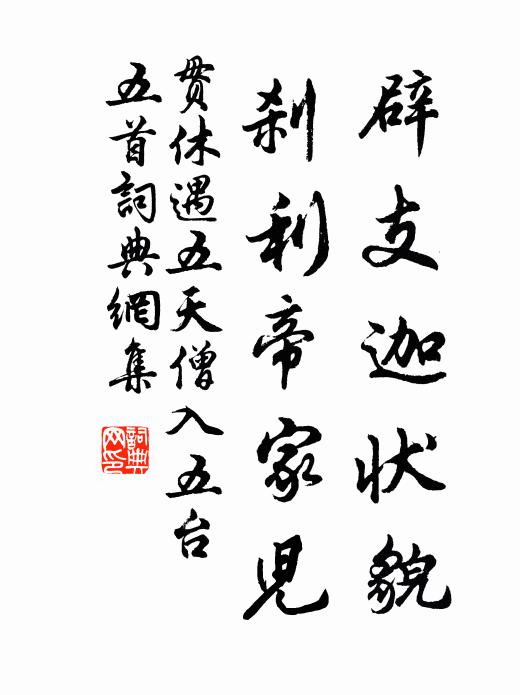 辟支迦状貌
刹利帝家児
贯休遇五天僧入五台
五首詞典網集
詞典网印